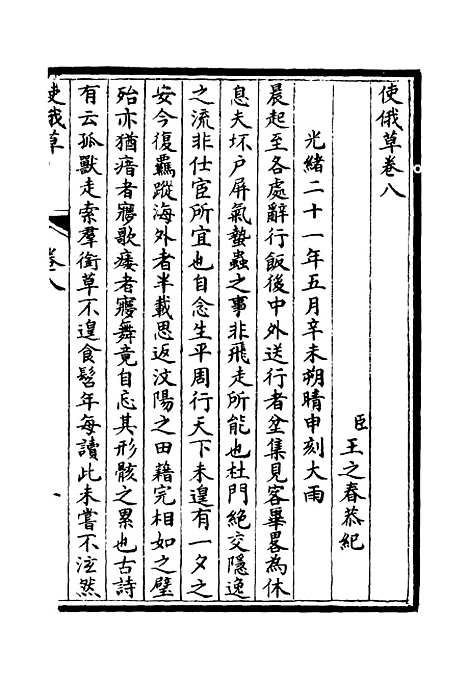 使俄草卷八
臣王之春恭紀
光緒二十一年五月辛未朔晴申刻大雨
晨起至各處辭行飯後中外送行者坌集見客畢畧為休
息夫坏户屏氣蟄蟲之事非飛走所能也杜門絶交隱逸
之流非仕宦所宜也自念生平周行天下未遑有一夕之
安今復羈蹤海外者半載思返汶陽之田藉完相如之璧
殆亦猶瘖者寱歌痿者寱舞竟自忘其形骸之累也古詩
有云孤獸走索羣銜草不遑食髫年每讀此未嘗不泫然
使俄草
卷八
一